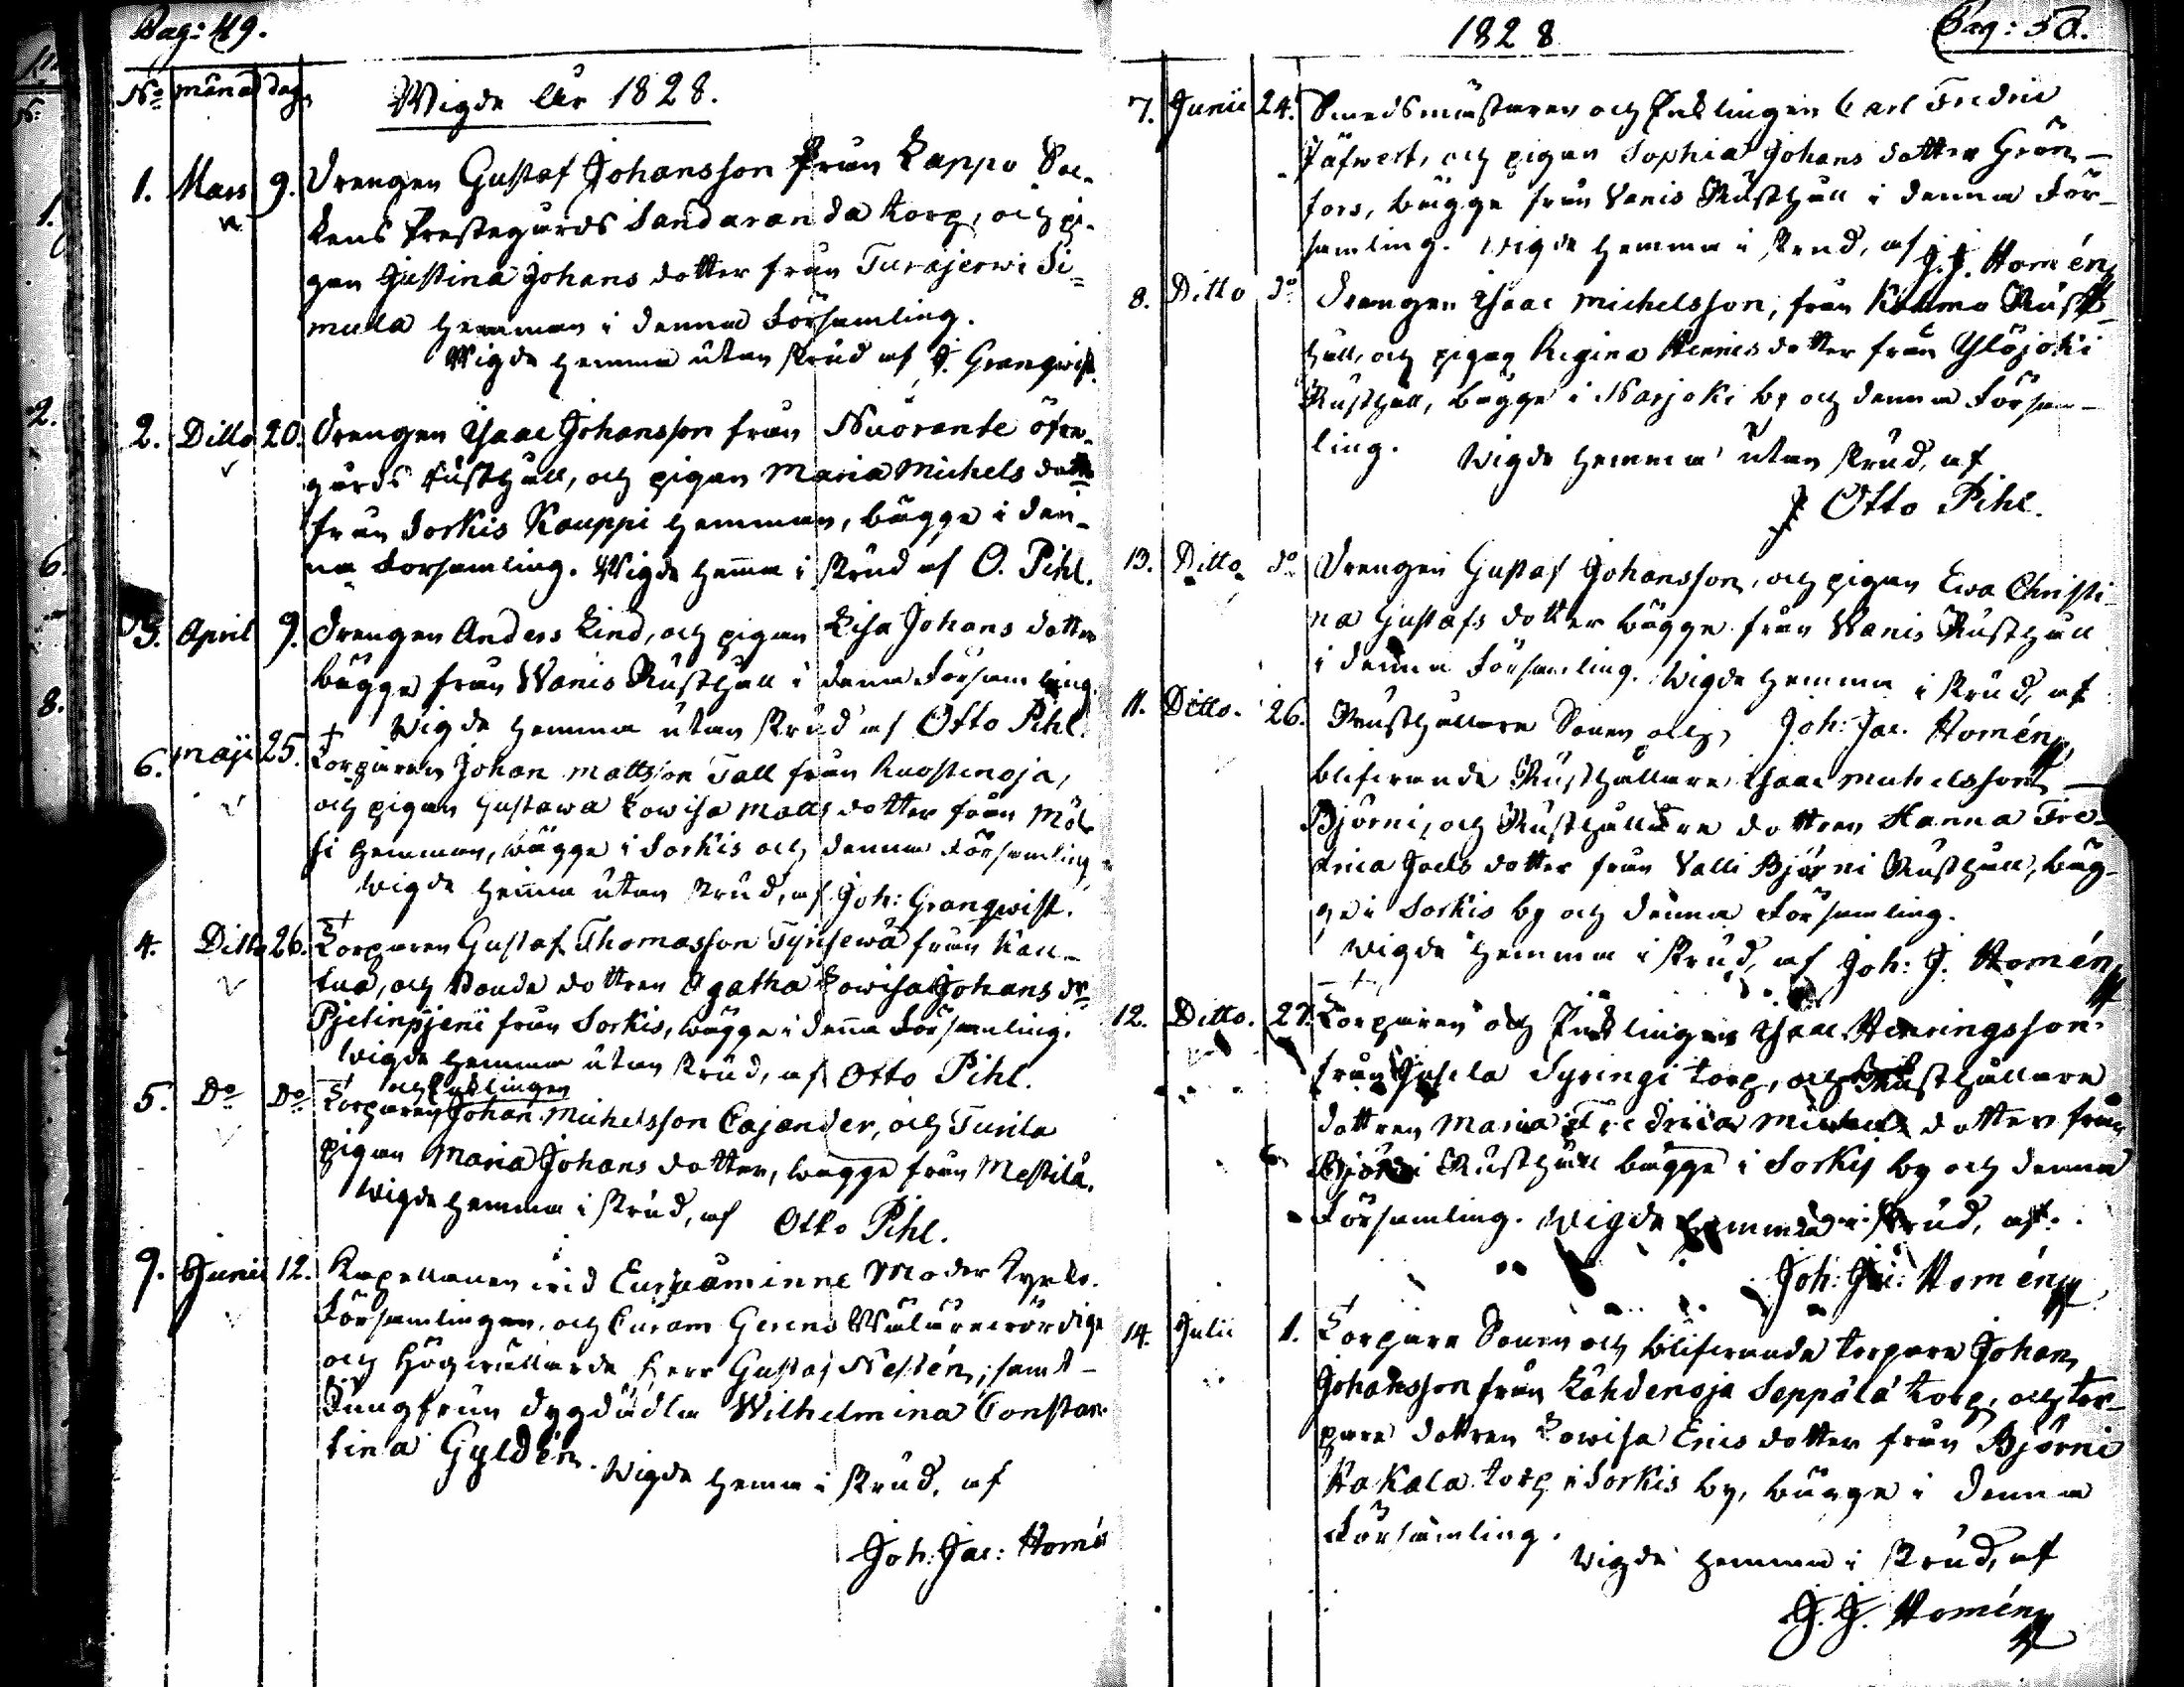 Pag: 49.
No månad dag
Wigde År 1828.
1. Mars 9. Drengen Gustaf Johansson från Lappo Soc-
kens Prestegårds Sandaranda torp, och pi-
gan Justina Johans dotter från Turajerwi Si-
mula hemman i denna Församling.
Wigde hemma utan skrud af J. Granqwist.
2. Ditto 20. Drengen Isaac Johansson från Nuorante öfre-
gårds Rusthåll, och pigan Maria Michels dotter
från Sorkis Kauppi hemman, bägge i den-
na Församling. Wigde hemma i skrud af O. Pihl.
3. April 9. Drengen Anders Lind, och pigan Lisa Johans dotter
bägge från Wanis Rusthåll i denna Församling.
Wigde hemma utan skrud af Otto Pihl.
6. Maji 25. Torparen Johan Mattsson Tall från Ruostenoja,
och pigan Gustawa Lowisa Matts dotter från
hemman, bägge i Sorkis och denna Församling
Wigde hemma utan skrud, af Joh: Granqwist.
4. Ditto 26. Torparen Gustaf Thomasson från Kau-
tua, och Bonde dottren Agatha Lowisa Johans dr
från Sorkis, bägge i denna Församling.
Wigde hemma utan skrud, af Otto Pihl.
och Enklingen
5. Do Do Torparen Johan Michelsson Cajander, och
pigan Maria Johans dotter, bägge från Mestilä.
Wigde hemma i skrud, af Otto Pihl.
9. Junii 12. Kapellanen wid Euraåminne Moder kyrko-
Församlingen, och Curam Gerens Wälärewördige
och Högwällärde Herr Gustaf Neslén, samt
Jungfrun dygdädla Wilhelmina Constan-
tina Gyldén. Wigde hemma i skrud, af
Joh: Jac: Homén
1828
Pag: 50.
7. Junii 24. Smedsmästaren och Enklingen Carl Fredric
Jäfwert, och pigan Sophia Johans dotter Grön-
fors, bägge från Vanis Rusthåll i denna För-
samling. Wigde hemma i skrud, af J. J. Homén
8. Ditto do Drengen Isaac Michelsson, från Rust-
håll, och pigan Regina dotter från Ylöjoki
Rusthåll, bägge i Narjoki by och denna Försam-
ling. Wigde hemma utan skrud, af
Otto Pihl.
13. Ditto do Drengen Gustaf Johansson, och pigan Ewa Christi-
na Gustafs dotter bägge från Wanis Rusthåll
i denna Församling. Wigde hemma i skrud, af
Joh: Jac. Homén
11. Ditto. 26. Rusthållare Sonen och
blifwande Rusthållaren Isaac Michelsson
Björni, och Rusthållare dottren Hanna Fre-
drica Joels dotter från Valli Björni Rusthåll, bäg-
ge i Sorkis by och denna Församling.
Wigde hemma i skrud, af Joh: J. Homén
12. Ditto. 27. Torparen och Enklingen Isaac Henningsson
från torp, och Rusthållare
dottren Maria Fredrica Michels dotter från
Björni Rusthåll bägge i Sorkis by och denna
Församling. Wigde hemma i skrud, af
Joh: Jac: Homén
14. Julii 1. Torpare Sonen och blifwande torpare Johan
Johansson från Lähdenoja Seppälä torp, och tor-
pare dottren Lowisa Erics dotter från Björni
Kakala torp i Sorkis by, bägge i denna
Församling.
Wigde hemma i skrud, af
J. J. Homén